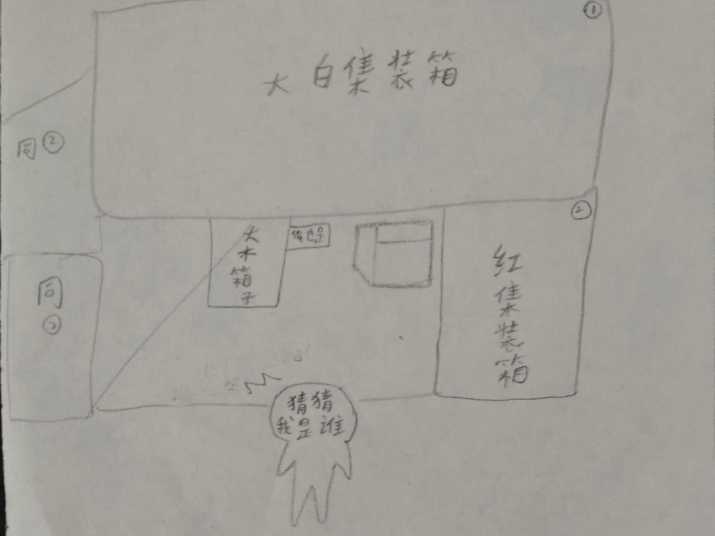 ①
大白集装箱
同②
②
大木箱子
红集装箱
同
②
猜猜
我是谁